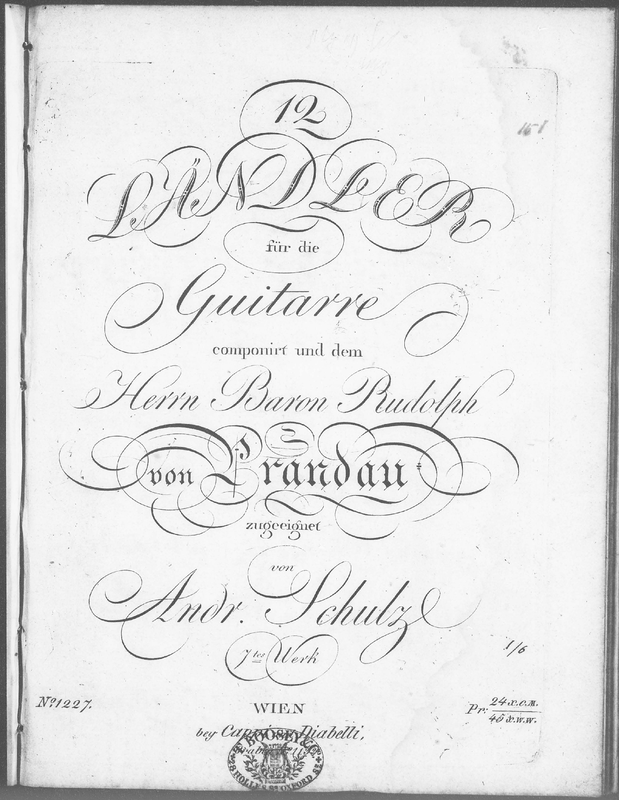 151
12
LÄNDLER
für die
Guitarre
componirt und dem
Herrn Baron Rudolph
von Prandau
zugeeignet
von
Andr. Schulz
7tes Werk
1/6
No 1227.
WIEN
Pr: 24 x.c.M.
45 x.w.w.
bey Cappi u. Diabelli,
BOOSEY & Co
HOLLES ST OXFORD ST